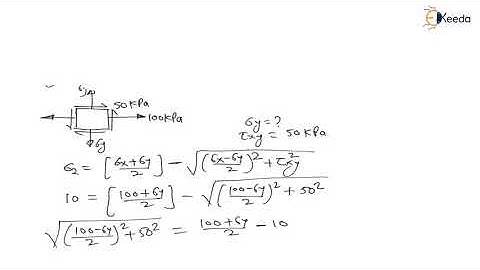 Ekeeda
σy
50 kPa
100 kPa
σy
σy = ?
τxy = 50 kPa
σ2 = [(σx+σy)/2] − √(((σx−σy)/2)² + τ²xy)
10 = [(100+σy)/2] − √(((100−σy)/2)² + 50²)
√(((100−σy)/2)² + 50²) = (100+σy)/2 − 10